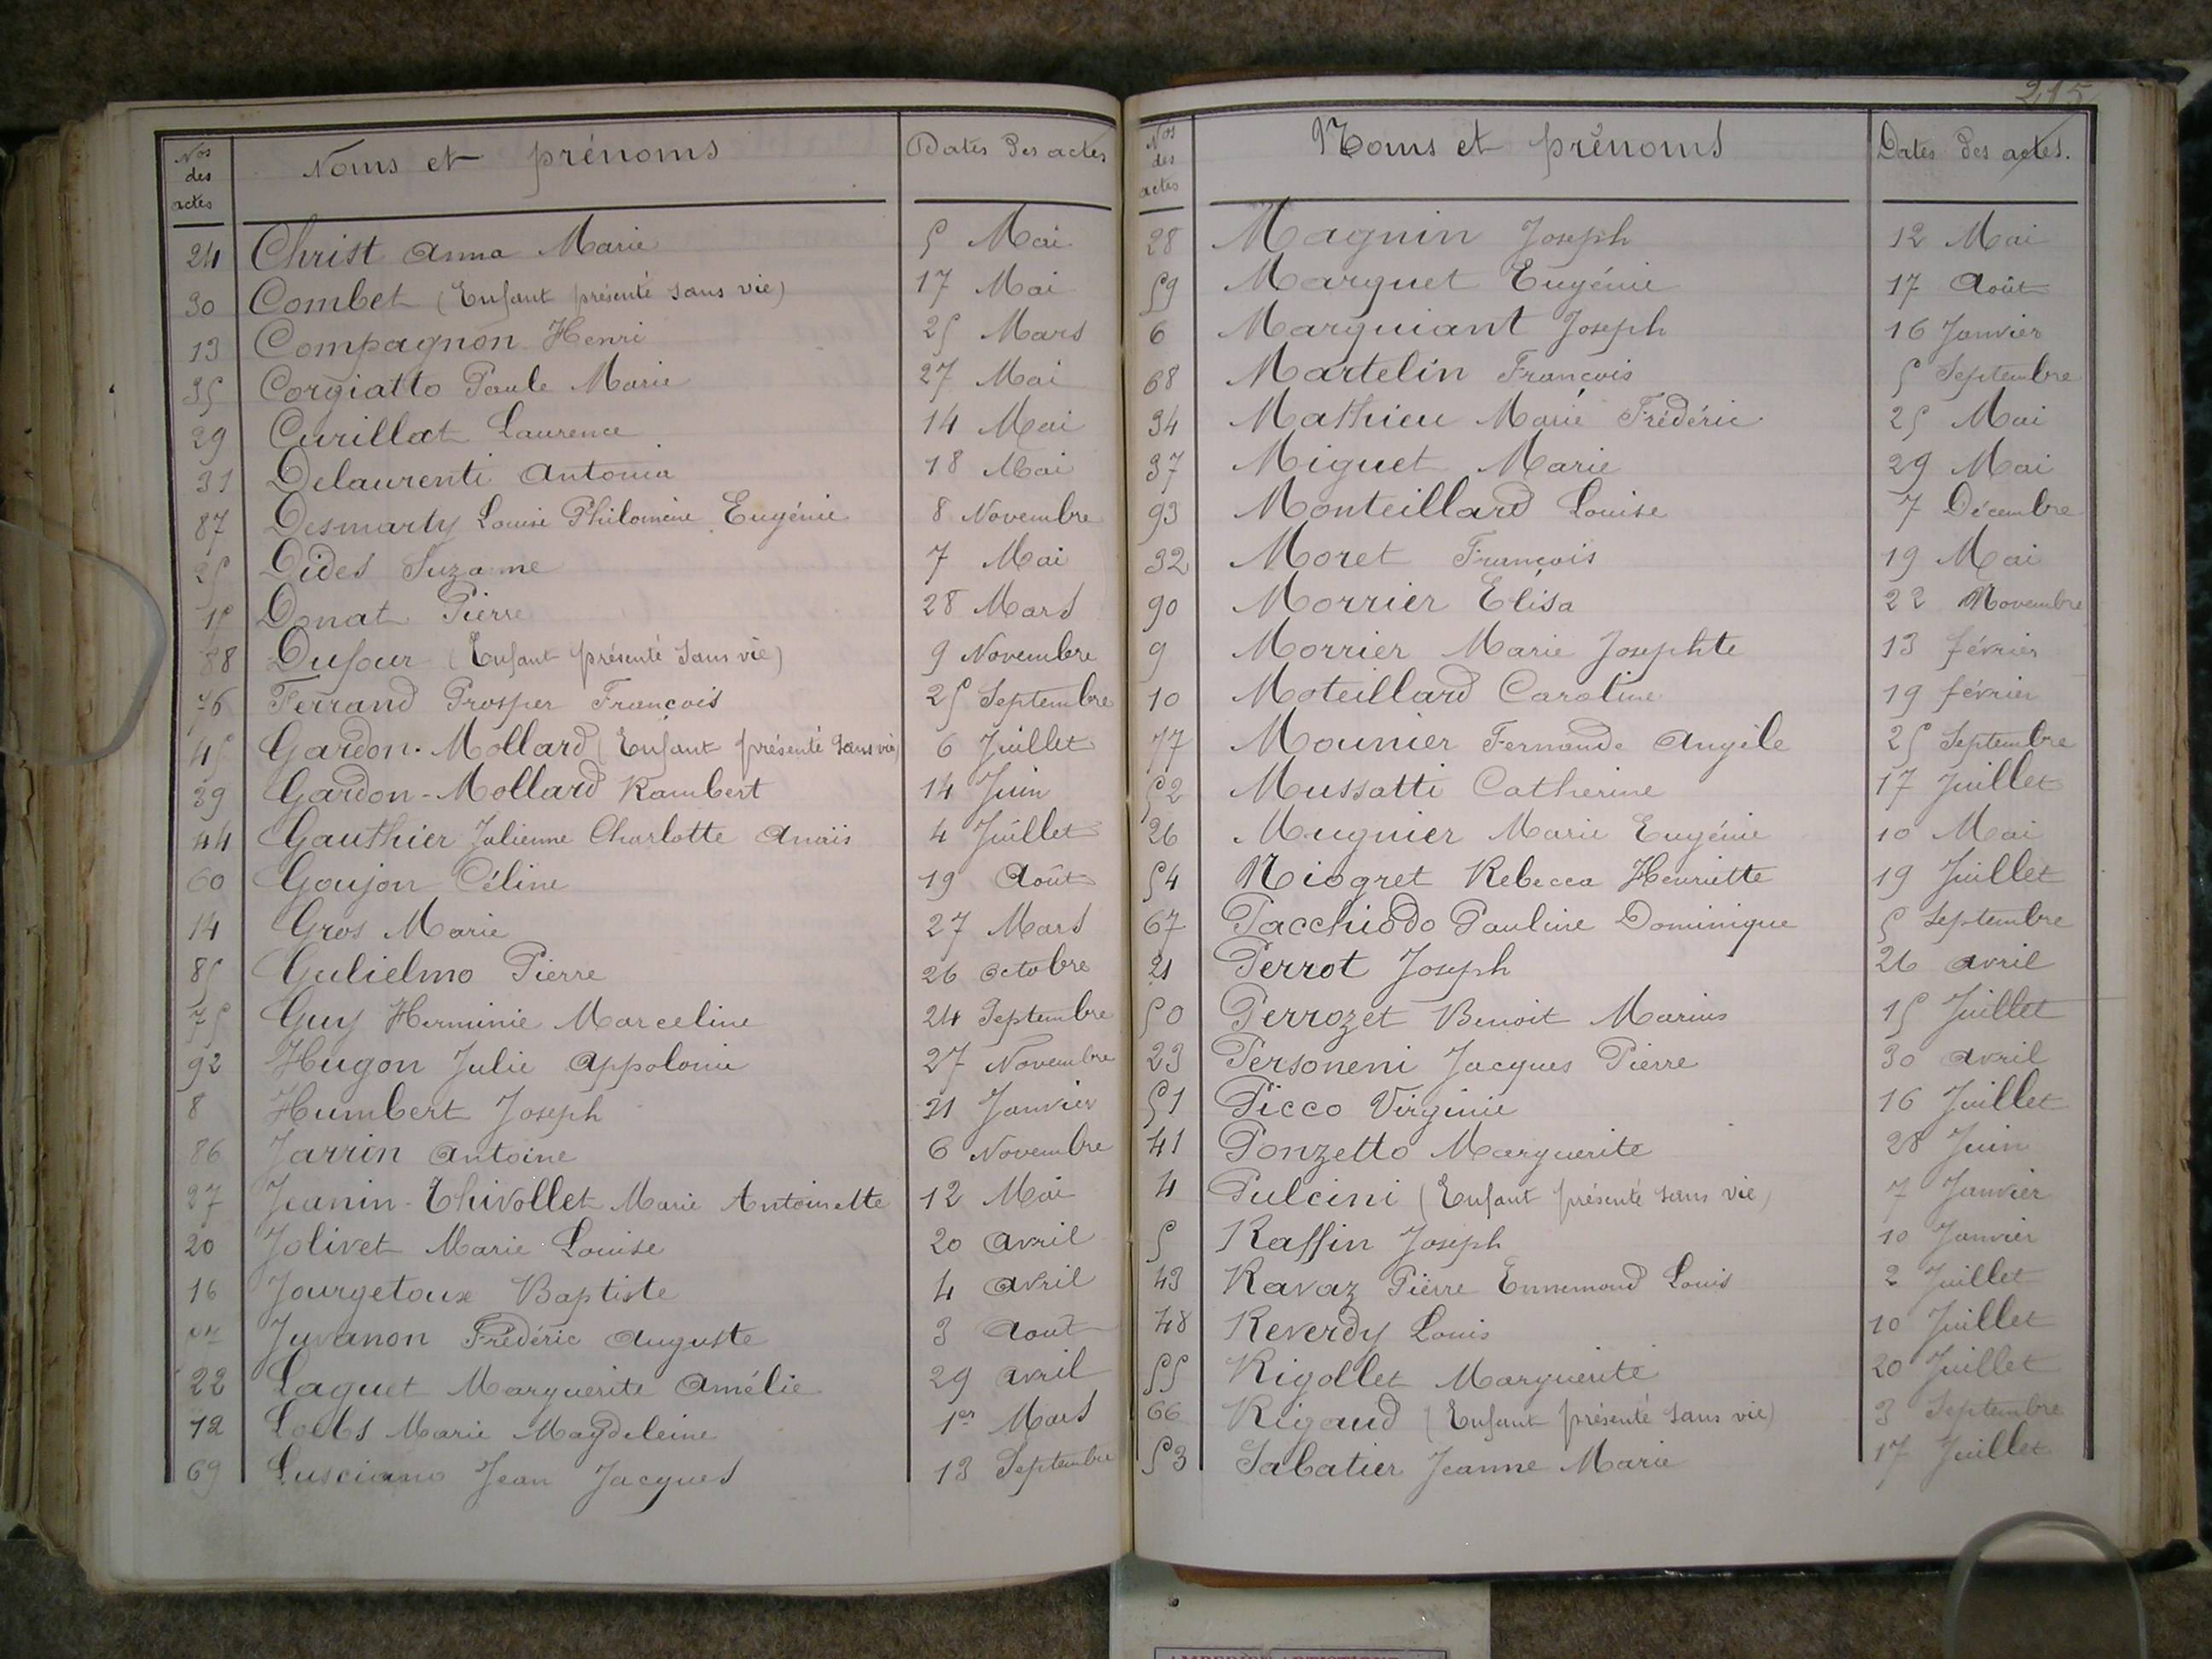 Nos des actes Noms et prénoms Dates des actes
24 Christ Anna Marie 5 Mai
30 Combet (Enfant présenté sans vie) 17 Mai
13 Compagnon Henri 25 Mars
35 Corgiatto Paule Marie 27 Mai
29 Curillat Laurence 14 Mai
31 Delaurenti Antonia 18 Mai
87 Desmarty Louise Philomène Eugénie 8 Novembre
25 Dides Suzanne 7 Mai
15 Donat Pierre 28 Mars
88 Dufour (Enfant présenté sans vie) 9 Novembre
76 Ferrand Prosper François 25 Septembre
45 Gardon-Mollard (Enfant présenté sans vie) 6 Juillet
39 Gardon-Mollard Rambert 14 Juin
44 Gauthier Julienne Charlotte Anaïs 4 Juillet
60 Goujon Céline 19 Août
14 Gros Marie 27 Mars
85 Gulielmo Pierre 26 Octobre
75 Guy Herminie Marceline 24 Septembre
92 Hugon Julie Appolonie 27 Novembre
8 Humbert Joseph 21 Janvier
86 Jarrin Antoine 6 Novembre
27 Jeanin-Thivollet Marie Antoinette 12 Mai
20 Jolivet Marie Louise 20 Avril
16 Jourgetoux Baptiste 4 Avril
Juvanon Frédéric Auguste 3 Août
22 Laguet Marguerite Amélie 29 Avril
12 Loebs Marie Magdeleine 1er Mars
69 Lusciano Jean Jacques 13 Septembre
215
Nos des actes Noms et prénoms Dates des actes.
28 Magnin Joseph 12 Mai
59 Marguet Eugénie 17 Août
6 Marguiant Joseph 16 Janvier
68 Martelin François 5 Septembre
34 Mathieu Marie Frédéric 25 Mai
37 Miguet Marie 29 Mai
93 Monteillard Louise 7 Décembre
32 Moret François 19 Mai
90 Morrier Élisa 22 Novembre
9 Morrier Marie Josephte 13 février
10 Moteillard Caroline 19 février
77 Mounier Fernande Angèle 25 Septembre
52 Mussatti Catherine 17 Juillet
26 Mugnier Marie Eugénie 10 Mai
54 Niogret Rebecca Henriette 19 Juillet
67 Pacchiodo Pauline Dominique 5 Septembre
21 Perrot Joseph 26 Avril
50 Perrozet Benoit Marius 15 Juillet
23 Personeni Jacques Pierre 30 Avril
51 Picco Virginie 16 Juillet
41 Ponzetto Marguerite 28 Juin
4 Pulcini (Enfant présenté sans vie) 7 Janvier
5 Raffin Joseph 10 Janvier
43 Ravaz Pierre Ennemond Louis 2 Juillet
48 Reverdy Louis 10 Juillet
55 Rigollet Marguerite 20 Juillet
66 Rigaud (Enfant présenté sans vie) 3 Septembre
53 Sabatier Jeanne Marie 17 Juillet